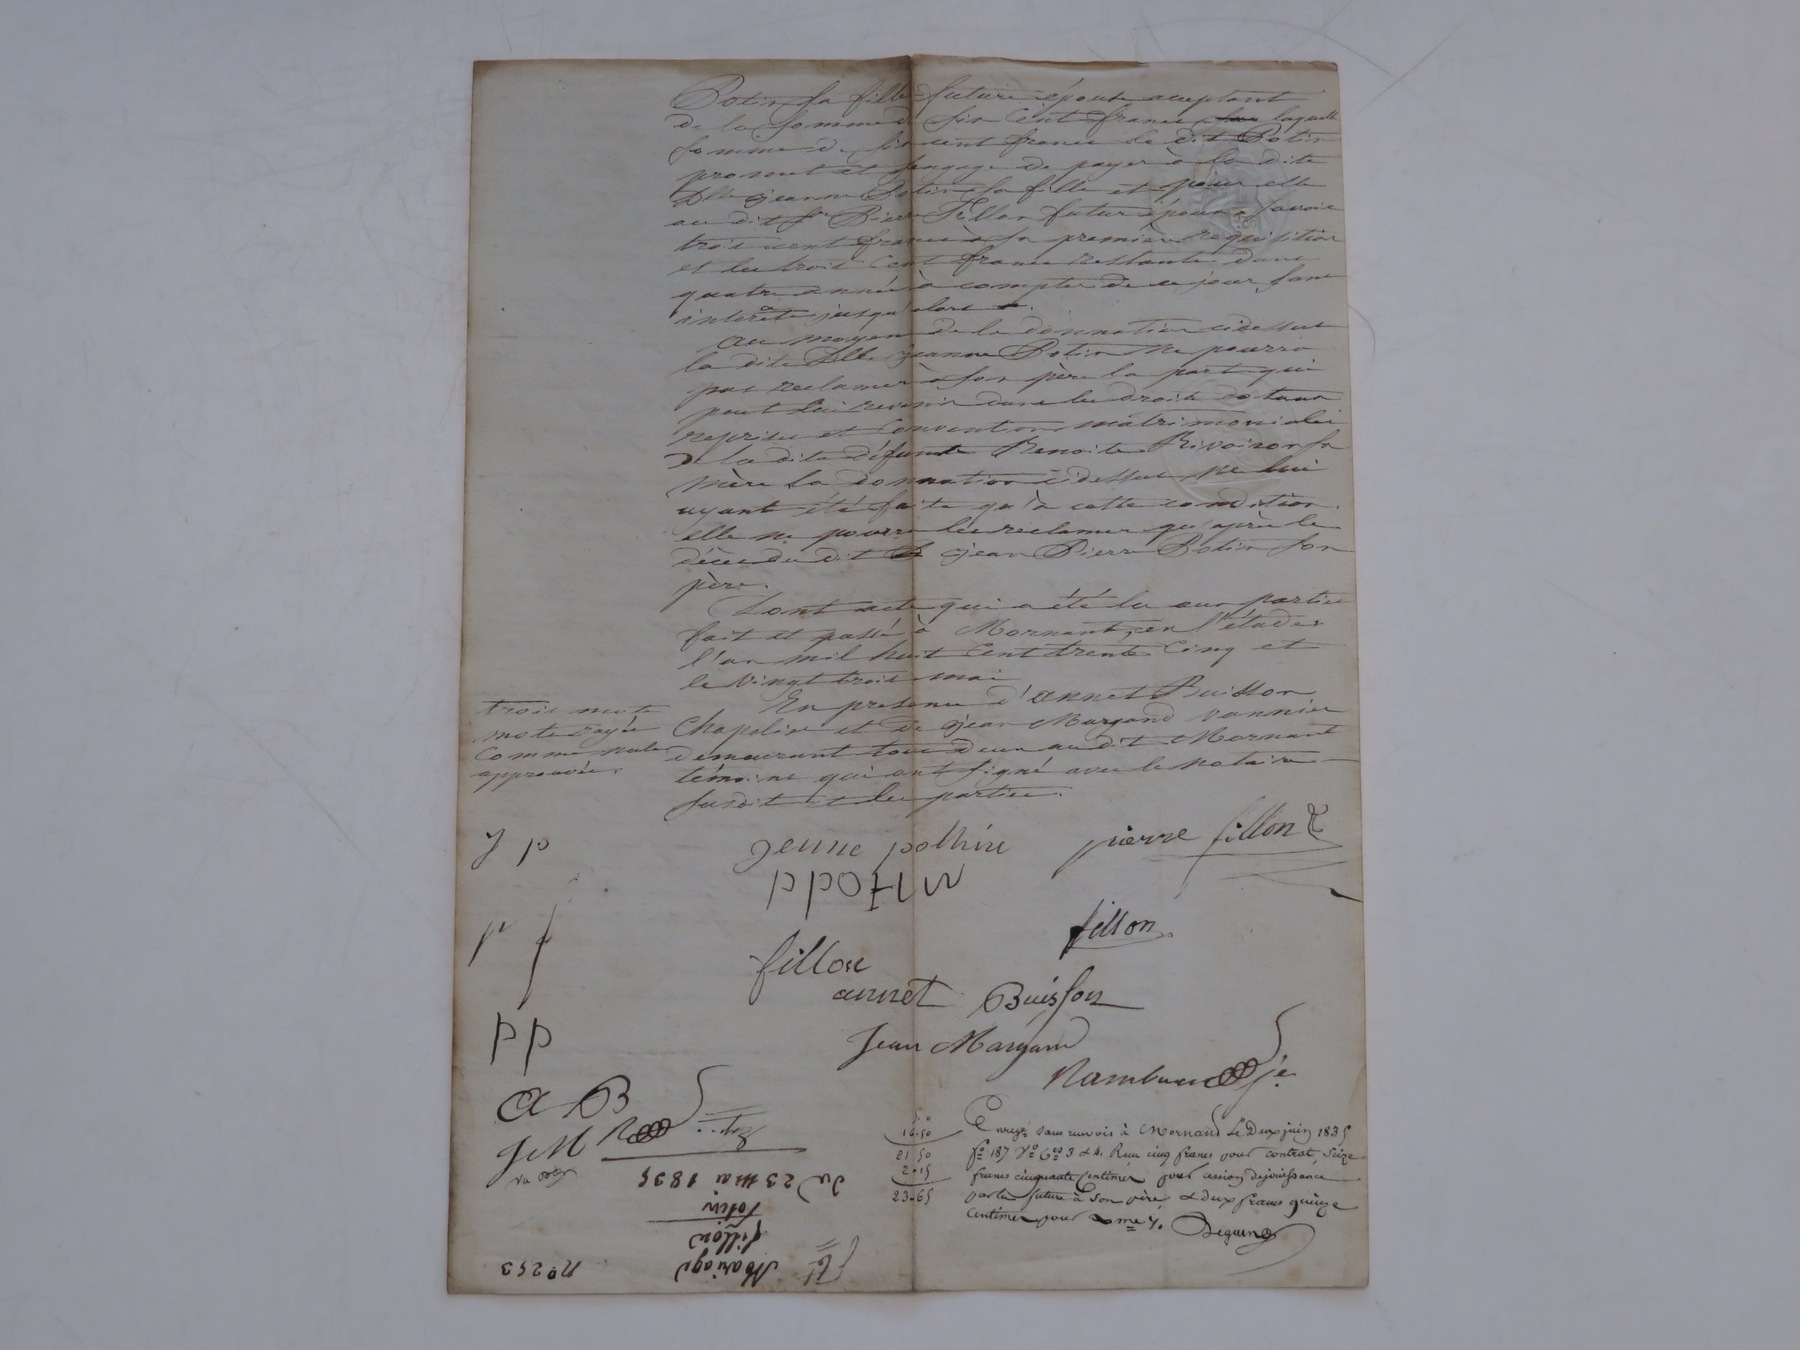 Potin sa fille future épouse acceptant
de la somme de six Cent francs laquelle
somme de six cent francs le dit Potin
promet et s'engage de payer à la dite
Dlle jeanne Potin sa fille et pour elle
au dit Sr Pierre Fillon futur époux savoir
trois cent francs à sa première requisition
et les trois Cent francs restants dans
quatre années à compter de ce jour sans
intérêts jusqu'alors.
Au moyen de la donnation cidessus
la dite Dlle jeanne Potin ne pourra
pas reclamer à son père la part qui
peut lui revenir dans les droits dotaux
reprises et Conventions matrimoniales
De la dite défunte Benoite Rivoiron sa
mère la donnation cidessus ne lui
ayant été faite qu'à cette condition
elle ne pourra les reclamer qu'après le
décès du dit jean Pierre Potin son
père.
Dont acte qui a été lu aux parties
fait et passé à Mornant, en l'étude
l'an mil huit Cent trente Cinq et
le vingt trois mai
En presence d'annet Buisson
Chapelier et de jean Margand vannier
demeurant tous deux au dit Mornant
témoins qui ont signé avec le notaire
susdit et les parties.
trois mots
mots rayés
Comme nuls
approuvés.
J p
jenne pothin
pierre fillon
ppotin
p f
fillon
fillon
annet Buisson
pp
Jean Margand
A B
J M
Enregt. sans renvois à Mornand le Deux juin 1835
fo 187 Vo Ces 3 et 4. Reçu cinq francs pour contrat Seize
francs cinquante Centimes pour cession de jouissance
par la future à son père et deux francs quinze
Centimes pour me %.
5 "
16.50
21 50
2.15
23.65
Du 23 mai 1835
Mariage
fillon
Potin
No 253